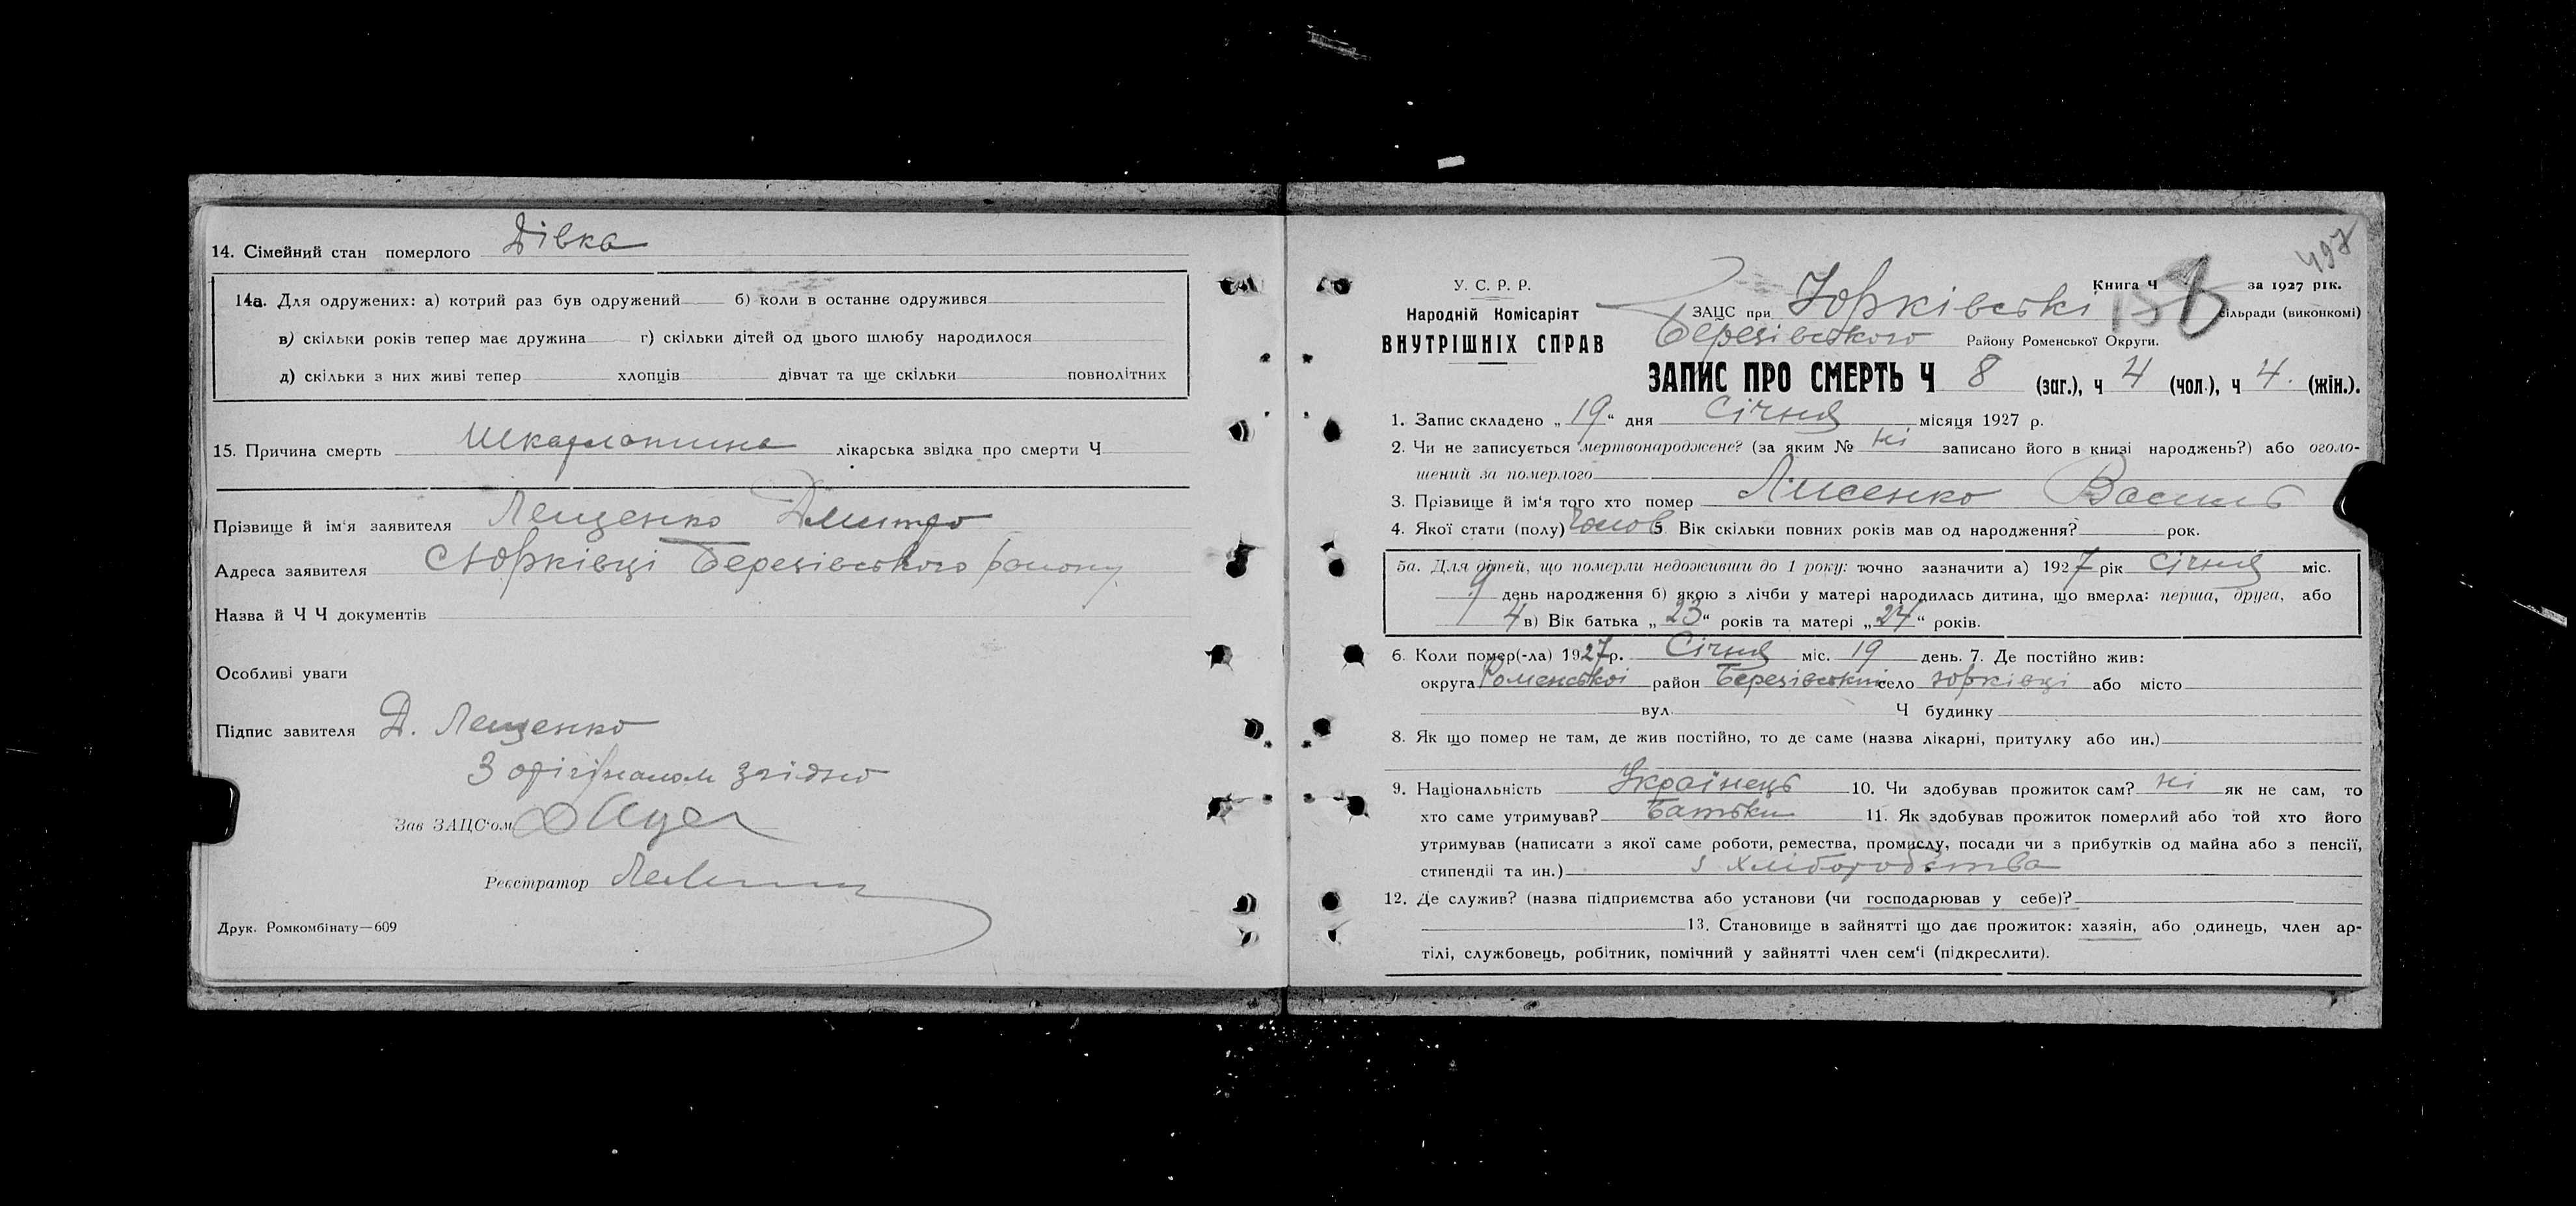 14. Сімейний стан померлого Дівка
14а. Для одружених: а) котрий раз був одружений б) коли в останнє одружився
в) скільки років тепер має дружина г) скільки дітей од цього шлюбу народилося
д) скільки з них живі тепер хлопців дівчат та ще скільки повнолітних
15. Причина смерть Шкарлатина лікарська звідка про смерти Ч
Прізвище й ім'я заявителя Лещенко Дмитро
Адреса заявителя с Юрківці Березівського району
Назва й Ч Ч документів
Особливі уваги
Підпис завителя Д. Лещенко
З оригіналом згідно
Зав ЗАЦС'ом
Реєстратор
Друк. Ромкомбінату—609
497
У. С. Р. Р.
Книга Ч за 1927 рік.
Народній Комісаріят
ВНУТРІШНІХ СПРАВ
ЗАЦС при Юрківські сільради (виконкомі)
Березівського Району Роменської Округи.
ЗАПИС ПРО СМЕРТЬ Ч 8 (заг.), ч 4 (чол.), ч 4. (жін.).
1. Запис складено „19“ дня Січня місяця 1927 р.
2. Чи не записується мертвонароджене? (за яким № ні записано його в книзі народжень?) або оголо-
шений за померлого
3. Прізвище й ім'я того хто помер Лисенко Василь
4. Якої стати (полу) Чолов 5 Вік скільки повних років мав од народження? рок.
5а. Для дітей, що померли недоживши до 1 року: точно зазначити а) 1927 рік Січня міс.
9 день народження б) якою з лічби у матері народилась дитина, що вмерла: перша, друга, або
4 в) Вік батька „23“ років та матері „24“ років.
6. Коли помер(-ла) 1927 р. Січня міс. 19 день. 7. Де постійно жив:
округа Роменської район Березівський село Юрківці або місто
вул. Ч будинку
8. Як що помер не там, де жив постійно, то де саме (назва лікарні, притулку або ин.)
9. Національність Українець 10. Чи здобував прожиток сам? ні як не сам, то
хто саме утримував? Батьки 11. Як здобував прожиток померлий або той хто його
утримував (написати з якої саме роботи, ремества, промислу, посади чи з прибутків од майна або з пенсії,
стипендії та ин.) з хліборобства
12. Де служив? (назва підприємства або установи (чи господарював у себе)?
13. Становище в зайнятті що дає прожиток: хазяін, або одинець, член ар-
тілі, службовець, робітник, помічний у зайнятті член сем'ї (підкреслити).